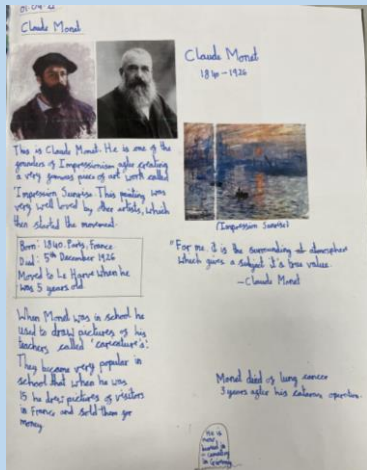 Claude Monet
Claude Monet
1840-1926
This is Claude Monet. He is one of the
founders of Impressionism after creating
a very famous piece of art work called
'Impression Sunrise'. This painting was
very well loved by other artists, which
then started the movement.
(Impression Sunrise)
Born: 1840, Paris, France
Died: 5th December 1926
Moved to Le Harve when he
was 5 years old
"For me, it is the surrounding at atmosphere
which gives a subject it's true value.
-Claude Monet
When Monet was in school he
used to draw pictures of his
teachers called 'caricature's'.
They became very popular in
school that when he was
15 he drew pictures of visitors
in France and sold them for
money.
Monet died of lung cancer
3 years after his catarac operation.
He is
now
buried in
in